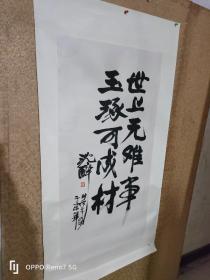 世上无难事
玉琢可成材
沈醉
OPPO Reno7 5G